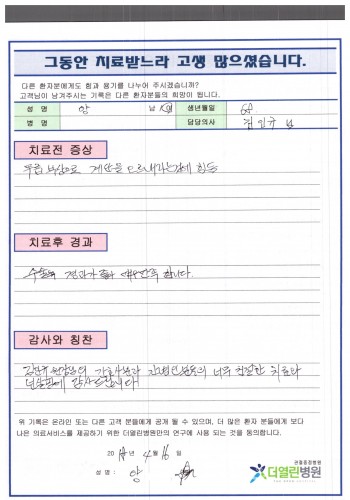 그동안 치료받느라 고생 많으셨습니다.
다른 환자분에게도 힘과 용기를 나누어 주시겠습니까?
고객님이 남겨주시는 기록은 다른 환자분들의 희망이 됩니다.
성 명 양 남 생년월일 68
병 명 담당의사 김민규 님
치료전 증상
무릎 부상으로 계단을 오르내리는것에 힘듬
치료후 경과
수술후 결과가 좋아 만족 합니다.
감사와 칭찬
김민규 원장님의 간호사분과 간병인분들의 너무 친절한 치료와
감사드립니다
위 기록은 온라인 또는 다른 고객 분들에게 공개 될 수 있으며, 더 많은 환자 분들에게 보다
나은 의료서비스를 제공하기 위한 더열린병원만의 연구에 사용 되는 것을 동의합니다.
년 4 월 16 일
성 명 : 양
관절중점병원
더열린병원